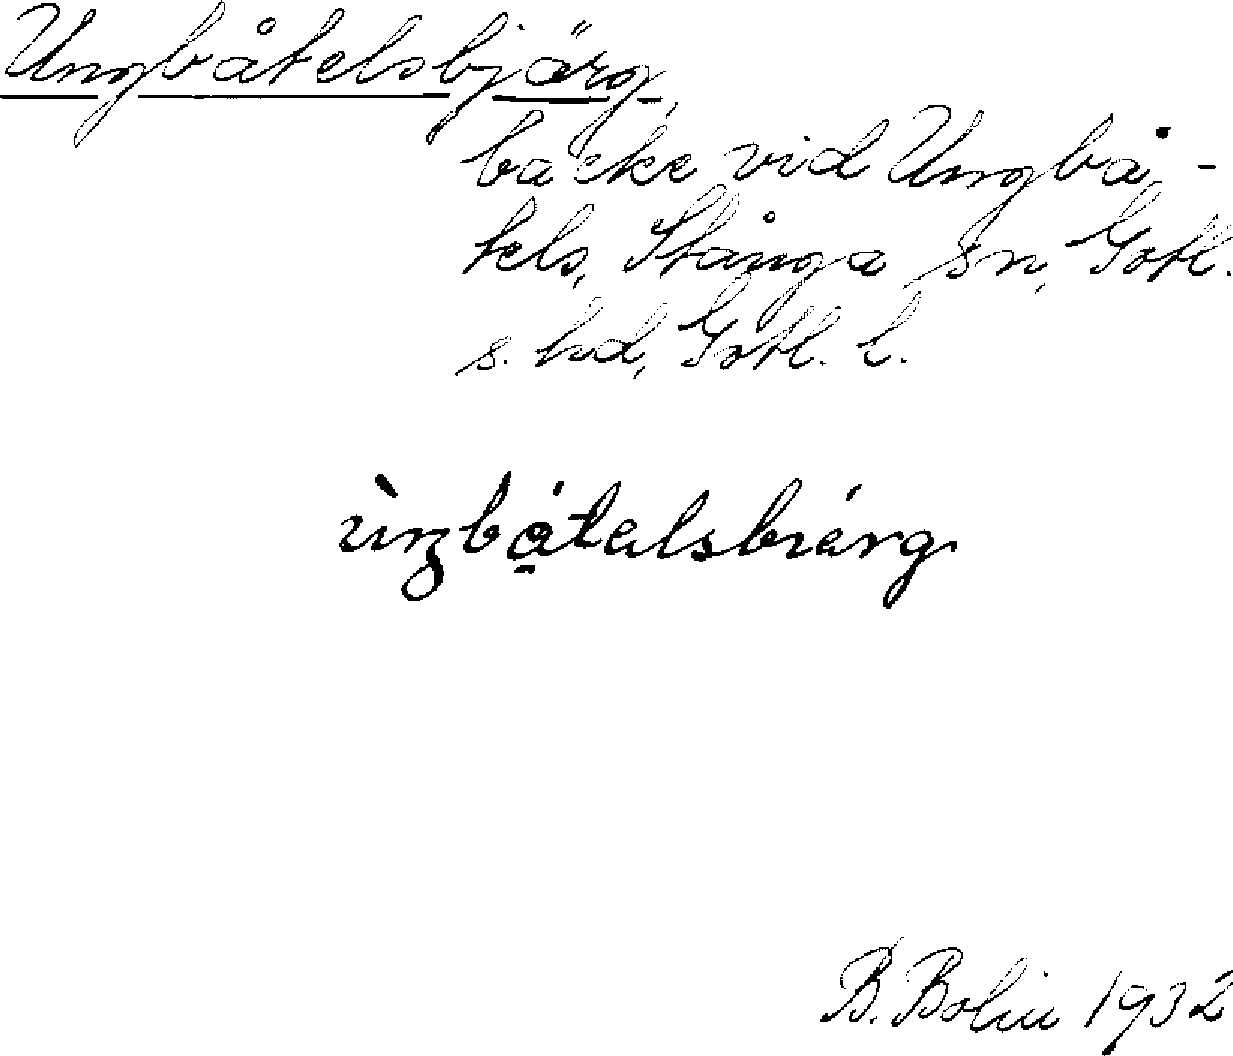 Ungbåtelsbjärg,
backe vid Ungbå-
tels, Stånga sn, Gotl.
s. hd, Gotl. l.
ùŋbá̱telsbiérg
B. Bolin 1932